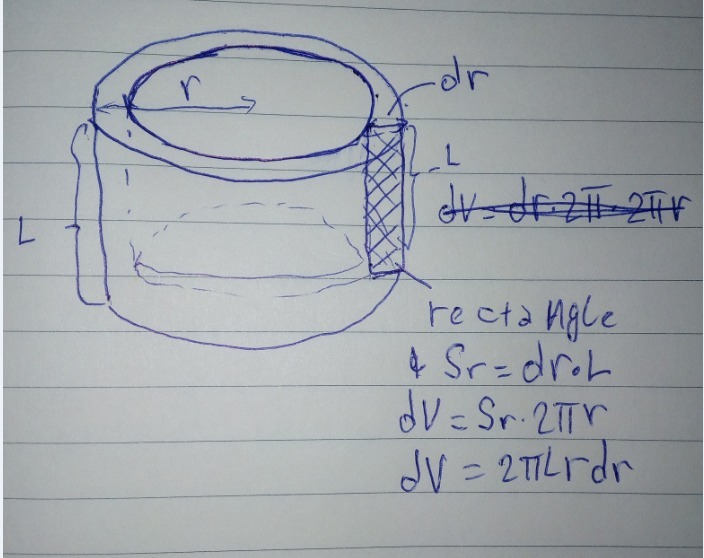 r
dr
L
L
dV = dr · 2π · 2πr
rectangle
Sr = dr · L
dV = Sr · 2πr
dV = 2πLrdr